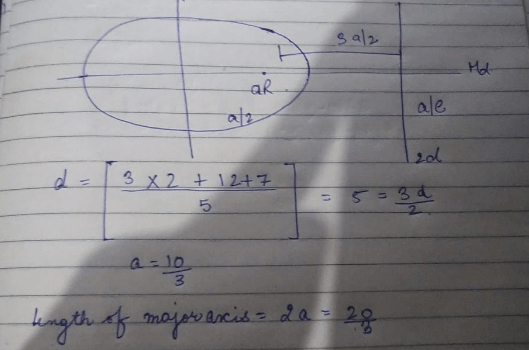 3 a/2
aR
a/2
a/e
2d
d = [ 3 × 2 + 12 + 7 / 5 ] = 5 = 3d / 2
a = 10 / 3
length of major axis = 2a = 20 / 3